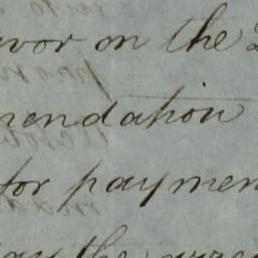 avor on the
mendation
for paymen
the